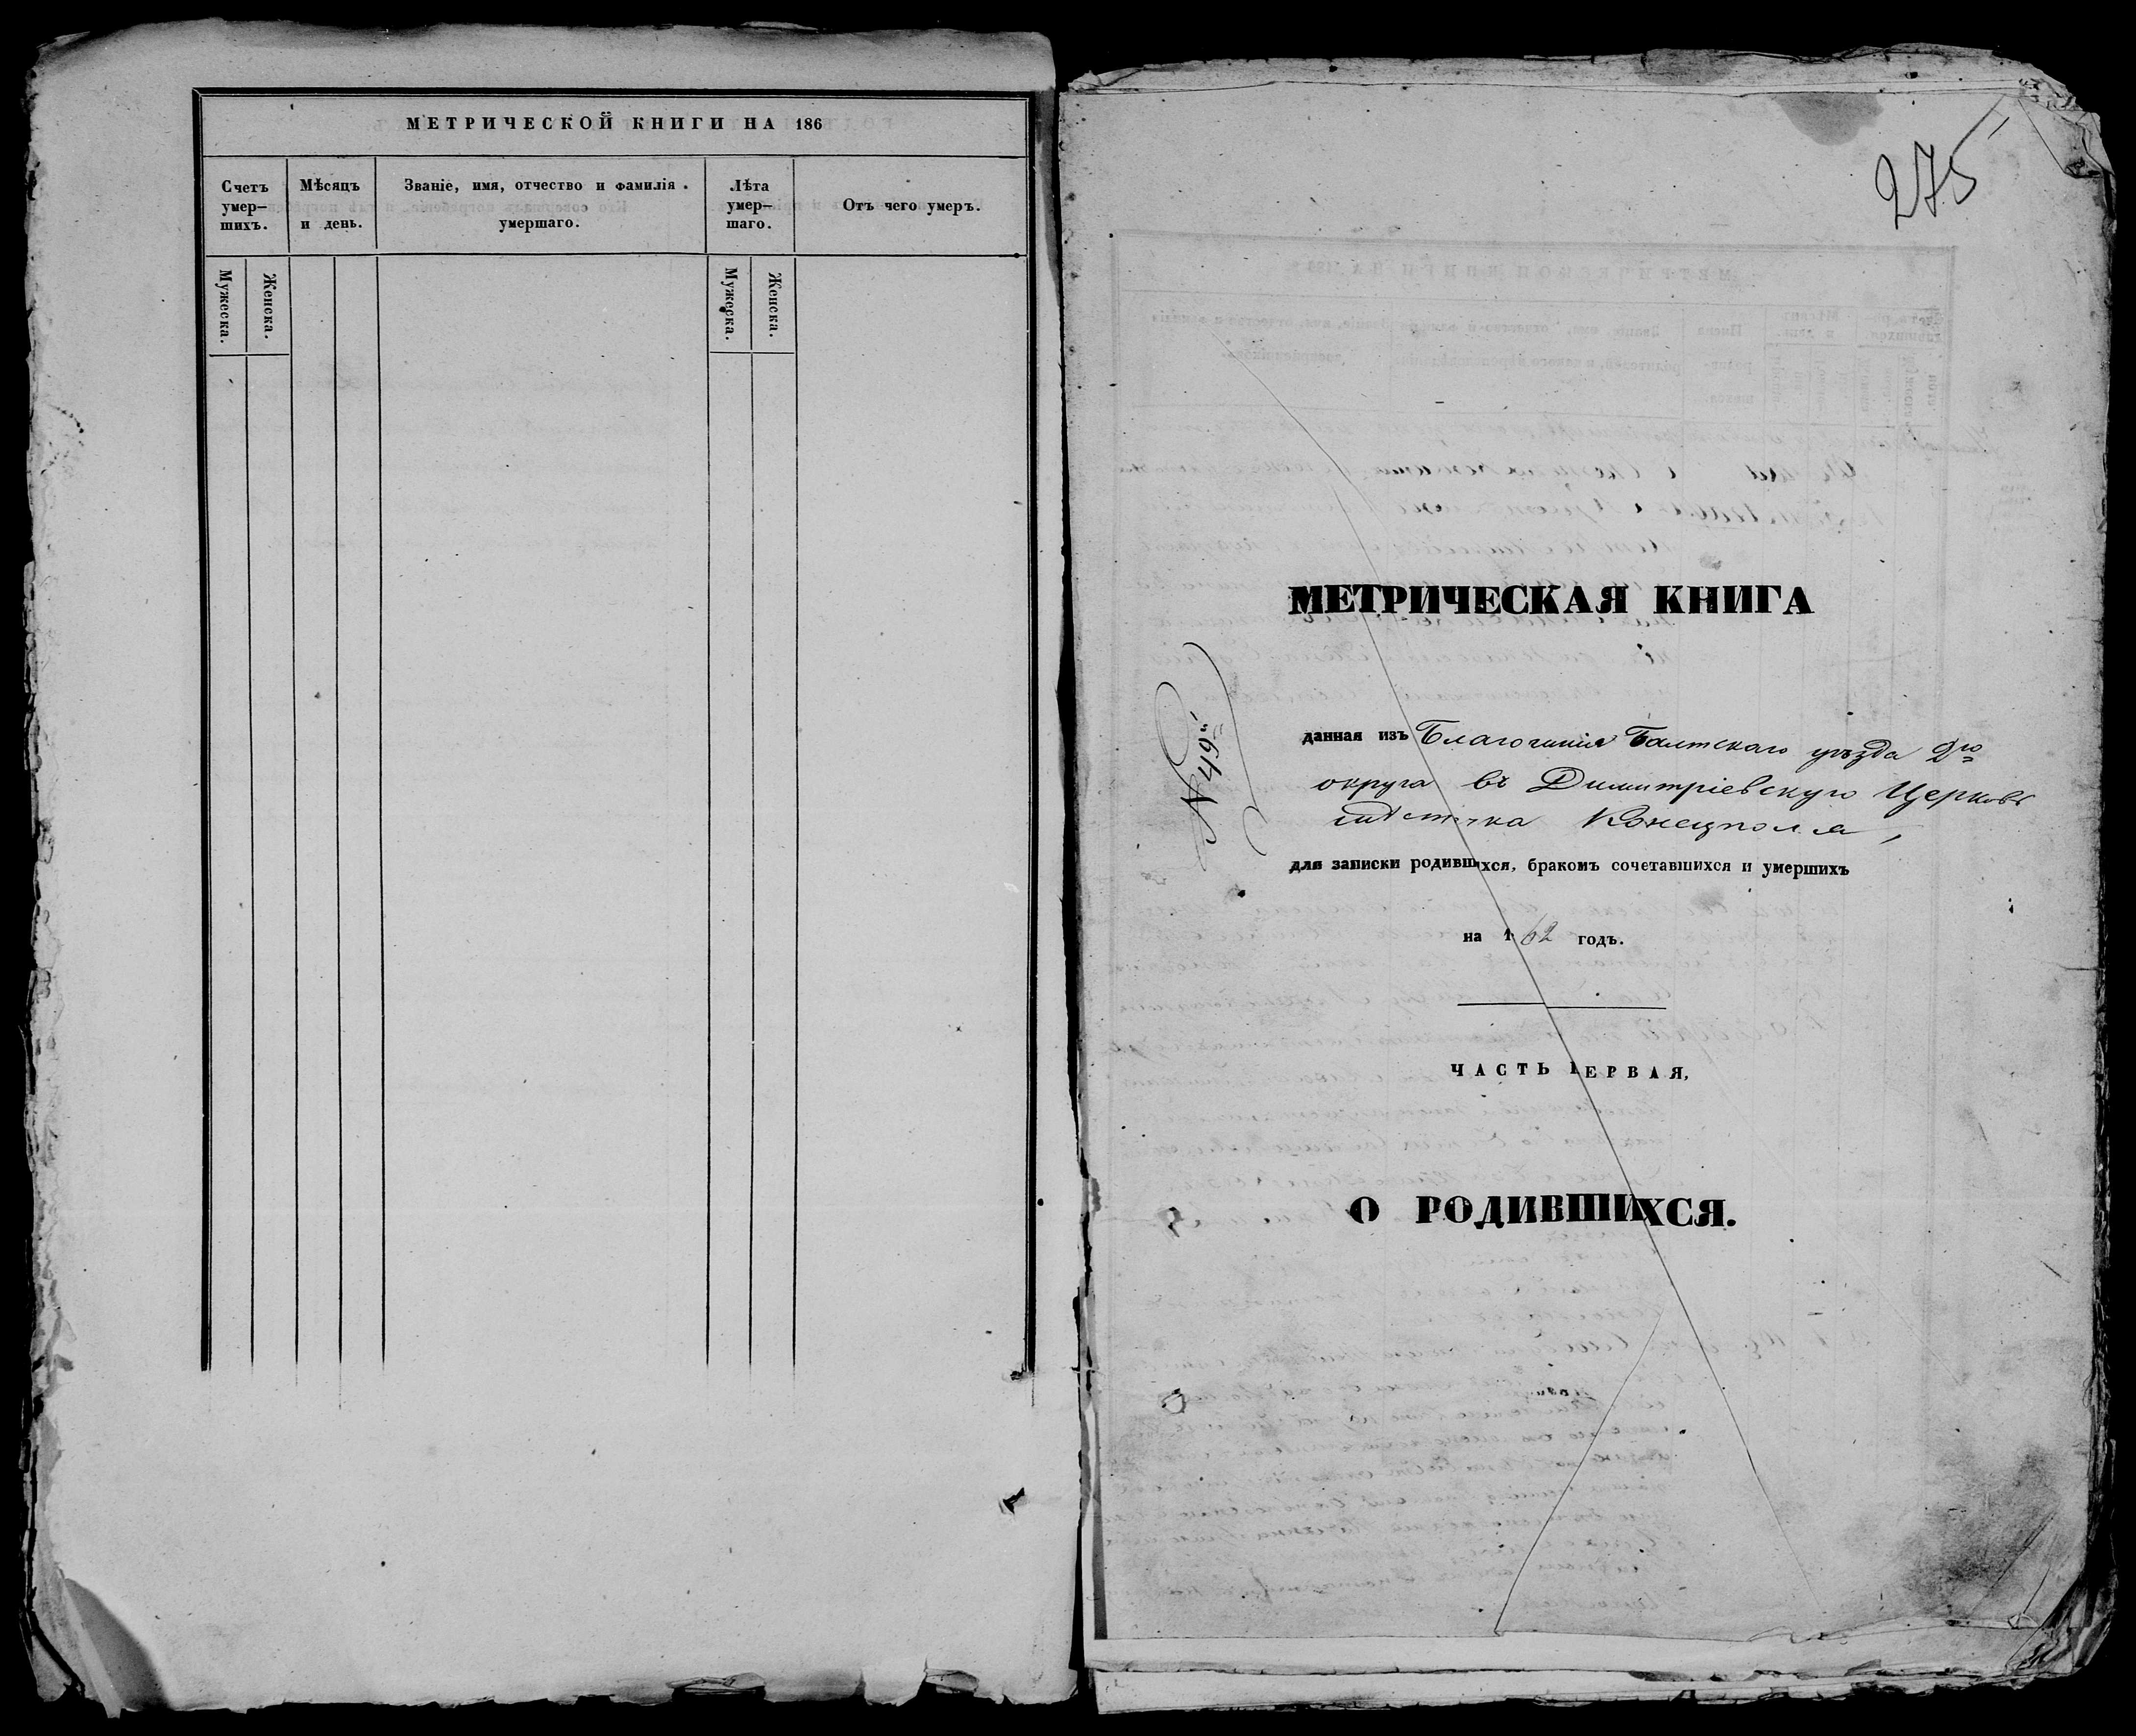 МЕТРИЧЕСКОЙ КНИГИ НА 186
Счетъ умер— шихъ.
Мѣсяцъ и день.
Званіе, имя, отчество и фамилія . умершаго.
Лѣта умер— шаго.
Отъ чего умеръ.
Мужеска.
Женска.
Мужеска.
Женска.
275
МЕТРИЧЕСКАЯ КНИГА
N 49й
данная изъ Благочинія Балтскаго уѣзда 2го
округа въ Димитріевскую Церковь
мѣстечка Конецполя,
для записки родившихся, бракомъ сочетавшихся и умершихъ
на 1 62 годъ.
ЧАСТЬ ПЕРВАЯ,
О РОДИВШИХСЯ.